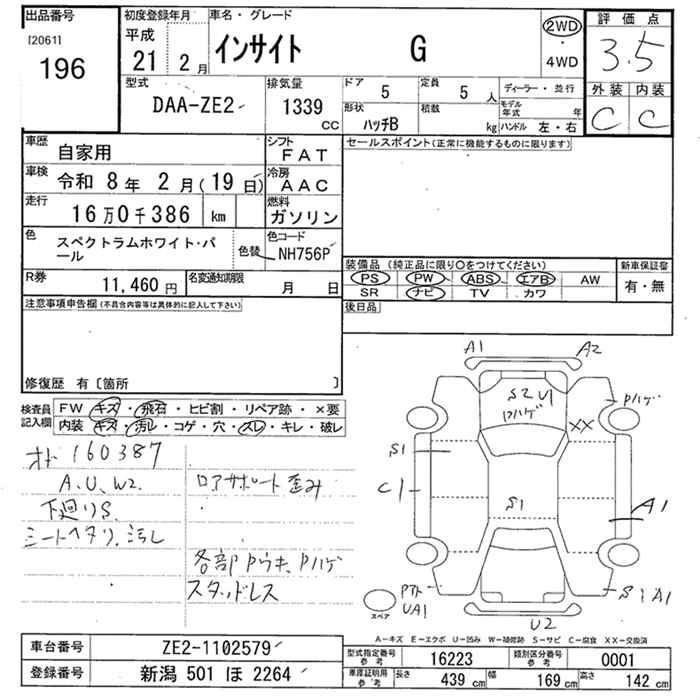 出品番号
[2061]
196
初度登録年月
平成
21 2月
車名・グレード
インサイト G
2WD
・
4WD
評価点
3.5
外装 内装
C C
型式
DAA-ZE2
排気量
1339
CC
ドア
5
定員
5人
形状
ハッチB
積数
kg
ディーラー・並行
モデル年式 年
ハンドル 左・右
車歴
自家用
シフト
FAT
車検
令和 8年 2月(19日)
冷房
AAC
走行
16万0千386 km
燃料
ガソリン
色
スペクトラムホワイト・パ
ール
色替
色コード
NH756P
R券
11,460円
名変通知期限
月 日
セールスポイント(正常に機能するものに限ります)
装備品 (純正品に限り○をつけてください)
PS PW ABS エアB AW
SR ナビ TV カワ
新車保証書
有・無
後日品
注意事項申告欄(不具合内容等は具体的に記入して下さい)
修復歴 有〔箇所 〕
検査員
記入欄
FW キズ・飛石・ヒビ割・リペア跡・×要
内装 キズ・汚レ・コゲ・穴・スレ・キレ・破レ
オド160387
A.U.W2.
下廻りS.
シートヘタリ.汚レ
ロアサポート歪み
各部Pウキ.Pハゲ
スタッドレス
A1 A2
S2 U1
Pハゲ
Pハゲ
XX
S1
C1
S1
A1
Pタト
UA1
S1A1
U2
スペア
A-キズ E-エクボ U-凹み W-補修跡 S-サビ C-腐食 XX-交換済
車台番号
ZE2-1102579
登録番号
新潟 501 ほ 2264
型式指定番号
参考
16223
類別区分番号
参考
0001
車庫証明用
参考
長さ
439 cm
幅
169 cm
高さ
142 cm